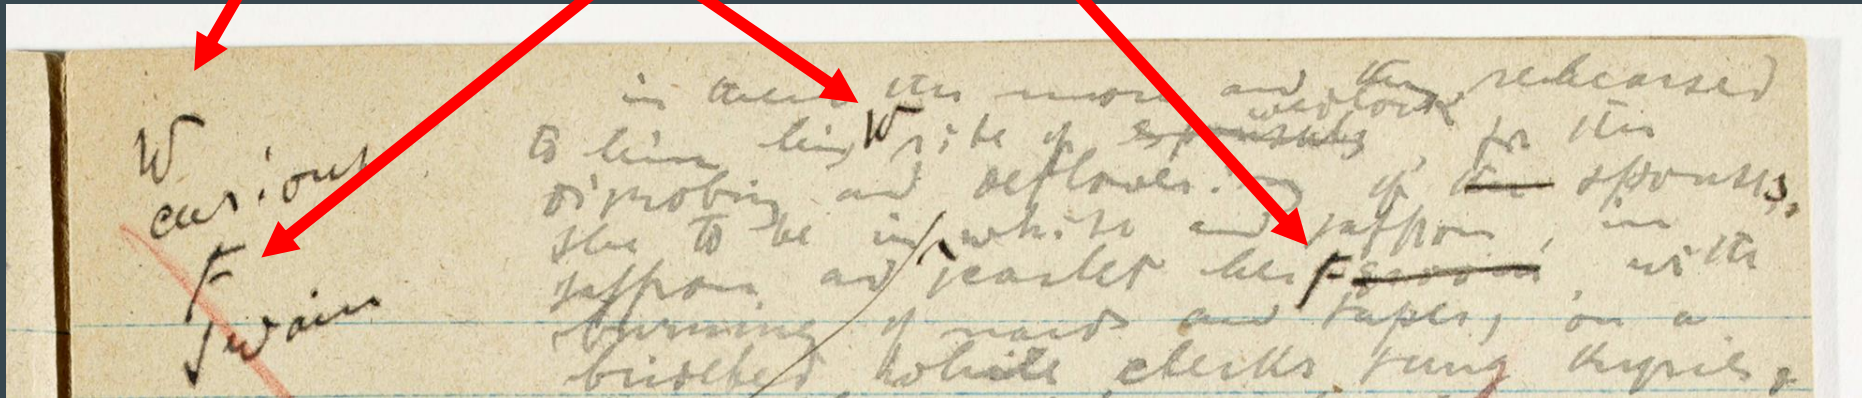 W
curious
F
swain
in this more and they rehearsed
wedlock
to him his W rite of espousals, for the
disrobing and deflowering of the spouses,
she to be in white and saffron, in
saffron and scarlet her F groom, with
burning of nards and tapers, on a
bridebed, while clerks sung kyries,